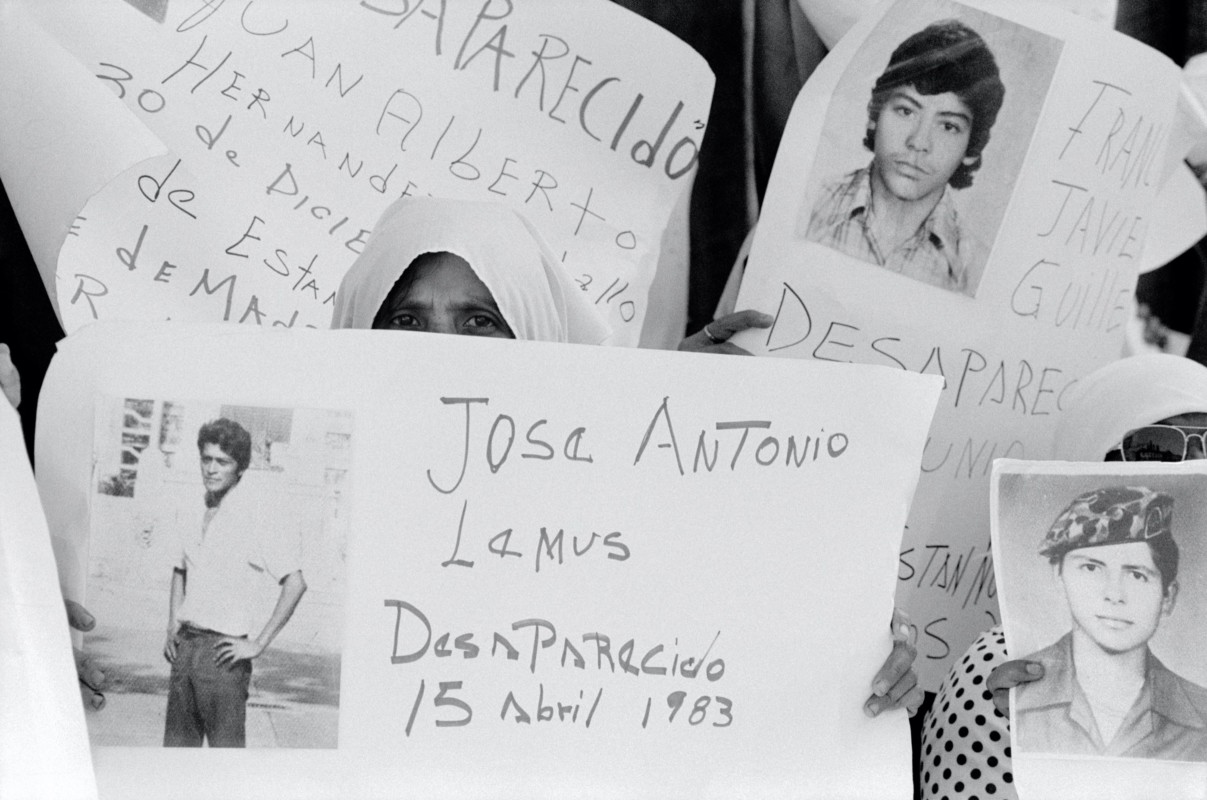 DESAPARECIDO
JUAN AlbERTO
HERNANdE
30 de DICIE
de EstAN
dE MAd
R
FRANC
JAVIE
GUillE
DESAPAREC
UNIO
STAN
OS
JOSE ANTONIO
LEMUS
DESAPARECIDO
15 Abril 1983